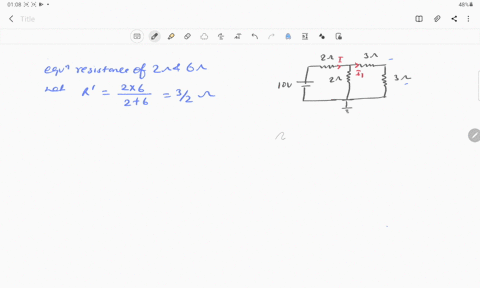 01:08
48%
Title
equⁿ resistance of 2Ω & 6Ω
R' = 2×6 / 2+6 = 3/2 Ω
2Ω I 3Ω
I₁
2Ω 3Ω
10V